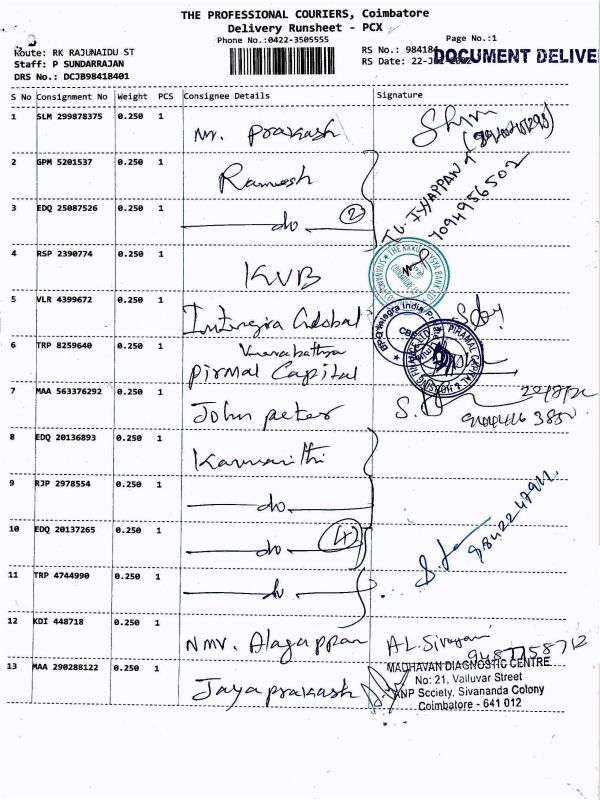 THE PROFESSIONAL COURIERS, Coimbatore
Delivery Runsheet - PCX
Phone No.:0422-3505555
Page No.:1
Route: RK RAJUNAIDU ST
RS No.: 984184
DOCUMENT DELIVE
Staff: P SUNDARRAJAN
RS Date: 22-J
DRS No.: DCJB98418401
S No Consignment No Weight PCS Consignee Details Signature
1 SLM 299878375 0.250 1 Mr. Prakash
2 GPM 5201537 0.250 1 Ramesh
TG. IYYAPPAN
7094956502
3 EDQ 25087526 0.250 1 do 2
4 RSP 2390774 0.250 1 KVB
5 VLR 4399672 0.250 1 Integra Global
6 TRP 8259640 0.250 1
Pirmal Capital
7 MAA 563376292 0.250 1 John peter
8 EDQ 20136893 0.250 1
9 RJP 2978554 0.250 1 do
10 EDQ 20137265 0.250 1 do 4
9842247911
11 TRP 4744990 0.250 1 do
12 KDI 448718 0.250 1 NMV. Alagappan A.L. Sivagami
9487758712
13 MAA 290288122 0.250 1 Jayaprakash
MADHAVAN DIAGNOSTIC CENTRE
No: 21, Valluvar Street
ANP Society, Sivananda Colony
Coimbatore - 641 012